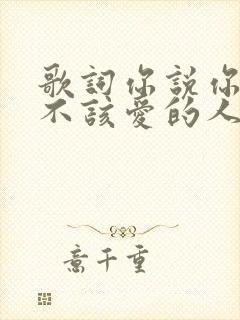 歌詞你説你
不該愛的人
意千重